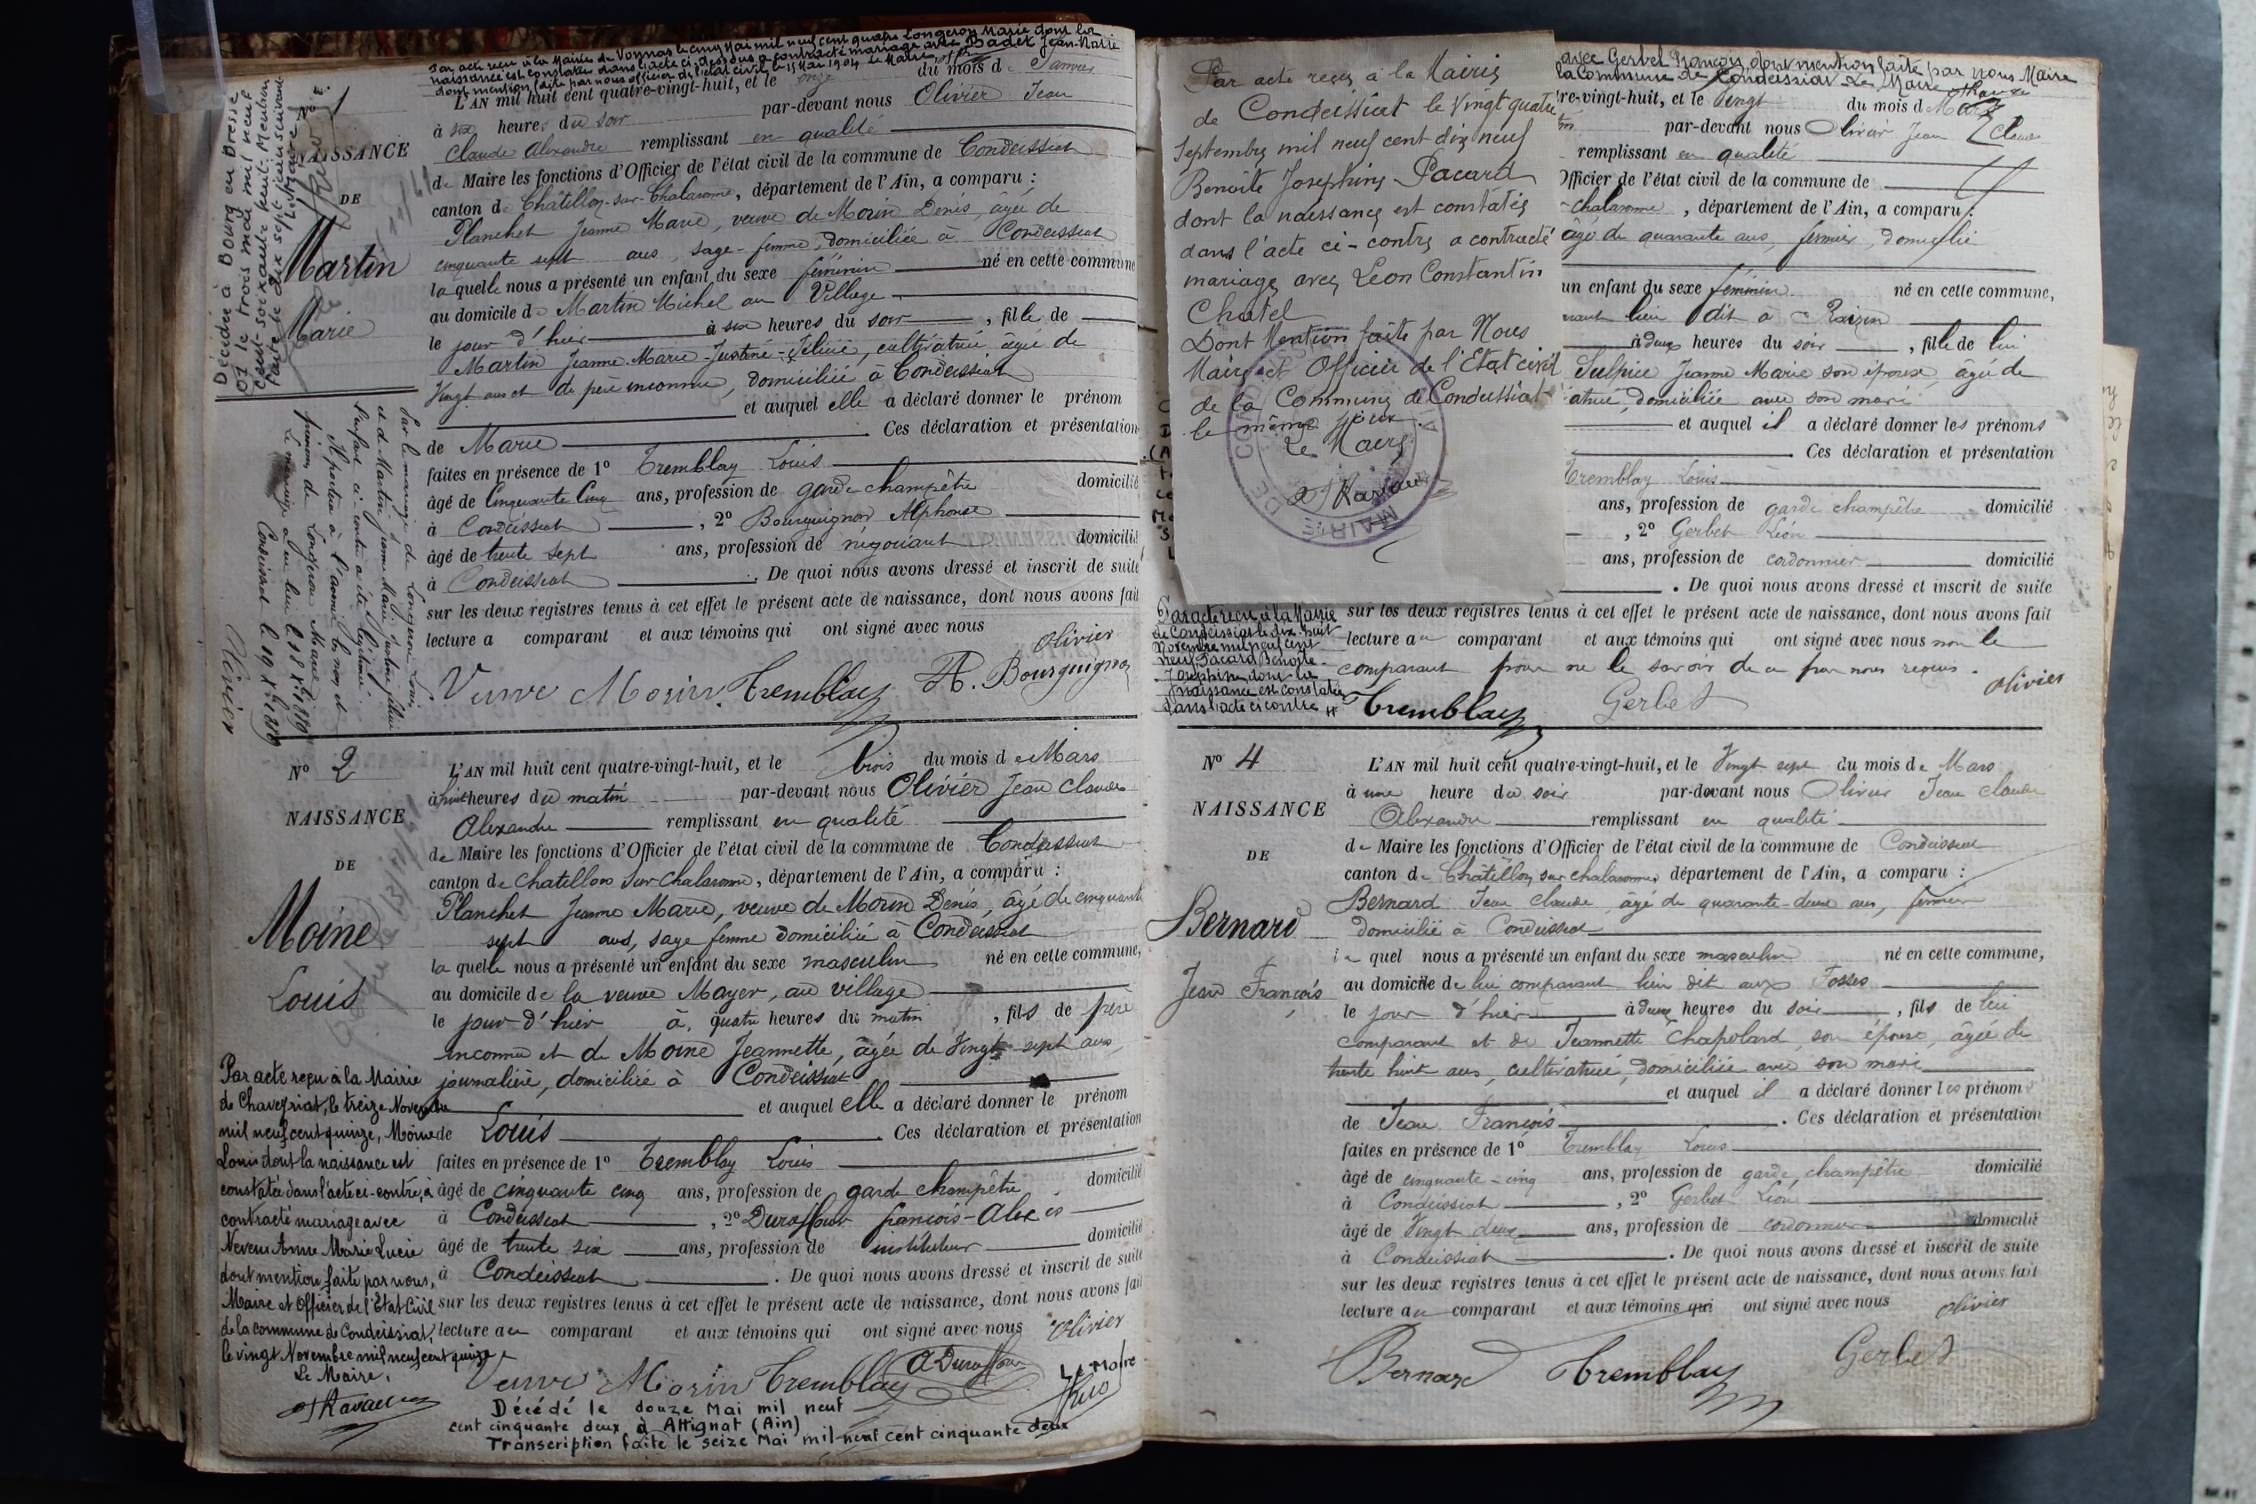 Par acte reçu à la Mairie de Vonnas le cinq Mai mil neuf cent quatre Longeron Marie dont la
naissance est constatée dans l'acte ci-dessous a contracté mariage avec Badet Jean-Marie
dont mention faite par nous officier de l'état civil le 15 Mai 1904 Le Maire,
Décédée à Bourg en Bresse
01 le trois mai mil neuf
cent soixante huit. Mention
faite le dix sept juin suivant
N° 1
NAISSANCE
DE
Martin
Marie
L'AN mil huit cent quatre-vingt-huit, et le onze du mois de Janvier
à six heures du soir par-devant nous Olivier Jean
Claude Alexandre remplissant en qualité
de Maire les fonctions d'Officier de l'état civil de la commune de Condeissiat
canton de Châtillon-sur-Chalaronne, département de l'Ain, a comparu :
Planchet Jeanne Marie, veuve de Morin Denis, âgée de
cinquante sept ans, sage-femme, domiciliée à Condeissiat
laquelle nous a présenté un enfant du sexe féminin né en cette commune
au domicile de Martin Michel au Village
le jour d'hier à six heures du soir, fille de
Martin Jeanne-Marie-Justine-Félicie, cultivatrice, âgée de
Vingt ans et de père inconnu, domiciliée à Condeissiat
et auquel elle a déclaré donner le prénom
de Marie Ces déclaration et présentation
faites en présence de 1° Tremblay Louis
âgé de Cinquante Cinq ans, profession de garde champêtre domicilié
à Condeissiat, 2° Bourguignon Alphonse
âgé de trente sept ans, profession de négociant domicilié
à Condeissiat. De quoi nous avons dressé et inscrit de suite
sur les deux registres tenus à cet effet le présent acte de naissance, dont nous avons fait
lecture a comparant et aux témoins qui ont signé avec nous
Olivier
Veuve Morin Tremblay A. Bourguignon
Par le mariage de Longeron Louis
et de Martin Jeanne Marie Justine félicie
l'enfant ci-contre a été légitimé.
Il portera à l'avenir les nom et
prénom de Longeron Marie
Le mariage a eu lieu le 18 Xbre 1889
Condeissiat le 19 Xbre 1889
Olivier
N° 2
NAISSANCE
DE
Moine
Louis
L'AN mil huit cent quatre-vingt-huit, et le trois du mois de Mars
à huit heures du matin par-devant nous Olivier Jean Claude
Alexandre remplissant en qualité
de Maire les fonctions d'Officier de l'état civil de la commune de Condeissiat
canton de Chatillon sur Chalaronne, département de l'Ain, a comparu :
Planchet Jeanne Marie, veuve de Morin Denis, âgé de cinquante
sept ans, sage femme domiciliée à Condeissiat
laquelle nous a présenté un enfant du sexe masculin né en cette commune,
au domicile de la veuve Mayer, au village
le jour d'hier à quatre heures du matin, fils de père
inconnu et de Moine Jeannette, âgée de Vingt sept ans,
journalière, domiciliée à Condeissiat
et auquel elle a déclaré donner le prénom
de Louis Ces déclaration et présentation
faites en présence de 1° Tremblay Louis
âgé de cinquante cinq ans, profession de garde champêtre domicilié
à Condeissiat, 2° Duraffour françois-Alexis
âgé de trente six ans, profession de instituteur domicilié
à Condeissiat. De quoi nous avons dressé et inscrit de suite
sur les deux registres tenus à cet effet le présent acte de naissance, dont nous avons fait
lecture au comparant et aux témoins qui ont signé avec nous Olivier
Veuve Morin Tremblay A Duraffour
Le Maire
Par acte reçu à la Mairie
de Chaveyriat, le treize Novembre
mil neuf cent quinze, Moine
Louis dont la naissance est
constatée dans l'acte ci-contre, a
contracté mariage avec
Neveu Anne Marie Lucie
dont mention faite par nous,
Maire et Officier de l'Etat Civil
de la commune de Condeissiat,
le vingt Novembre mil neuf cent quinze
Le Maire,
Décédé le douze Mai mil neuf
cent cinquante deux à Attignat (Ain)
Transcription faite le seize Mai mil neuf cent cinquante deux
Par acte reçu à la Mairie
de Condeissiat le vingt quatre
Septembre mil neuf cent dix neuf
Benoîte Joséphine Pacard
dont la naissance est constatée
dans l'acte ci-contre a contracté
mariage avec Léon Constantin
Chatel
Dont Mention faite par Nous
Maire et Officier de l'Etat civil
de la Commune de Condeissiat
le même jour
Le Maire
avec Gerbel François dont mention faite par nous Maire
de la Commune de Condeissiat Le Maire
re-vingt-huit, et le Vingt du mois de Mars
par-devant nous Olivier Jean Claude
remplissant en qualité
Officier de l'état civil de la commune de
chalaronne, département de l'Ain, a comparu :
âgé de quarante ans, fermier, domicilié
un enfant du sexe féminin né en cette commune,
lieu dit à Raizin
à deux heures du soir, fille de lui
Sulpice Jeanne Marie son épouse, âgée de
domiciliée avec son mari
et auquel il a déclaré donner les prénoms
Ces déclaration et présentation
Tremblay Louis
ans, profession de garde champêtre domicilié
, 2° Gerbet Léon
ans, profession de cordonnier domicilié
. De quoi nous avons dressé et inscrit de suite
sur les deux registres tenus à cet effet le présent acte de naissance, dont nous avons fait
lecture au comparant et aux témoins qui ont signé avec nous non le
comparant pour ne le savoir de ce par nous requis.
Olivier
Tremblay Gerbet
Par acte reçu à la Mairie
de Condeissiat le dix-huit
Novembre mil neuf cent
neuf Pacard Benoîte-
Joséphine dont la
naissance est constatée
dans l'acte ci contre
N° 4
NAISSANCE
DE
Bernard
Jean François
L'AN mil huit cent quatre-vingt-huit, et le Vingt sept du mois de Mars
à une heure du soir par-devant nous Olivier Jean Claude
Alexandre remplissant en qualité
de Maire les fonctions d'Officier de l'état civil de la commune de Condeissiat
canton de Châtillon sur chalaronne, département de l'Ain, a comparu :
Bernard Jean Claude, âgé de quarante-deux ans, fermier
domicilié à Condeissiat
le quel nous a présenté un enfant du sexe masculin né en cette commune,
au domicile de lui comparant lieu dit aux Fosses
le jour d'hier à deux heures du soir, fils de lui
comparant et de Jeannette Chapoland, son épouse, âgée de
trente huit ans, cultivatrice, domiciliée avec son mari
et auquel il a déclaré donner les prénoms
de Jean François. Ces déclaration et présentation
faites en présence de 1° Tremblay Louis
âgé de cinquante-cinq ans, profession de garde champêtre domicilié
à Condeissiat, 2° Gerbet Léon
âgé de Vingt deux ans, profession de cordonnier domicilié
à Condeissiat. De quoi nous avons dressé et inscrit de suite
sur les deux registres tenus à cet effet le présent acte de naissance, dont nous avons fait
lecture au comparant et aux témoins qui ont signé avec nous Olivier
Bernard Tremblay Gerbet